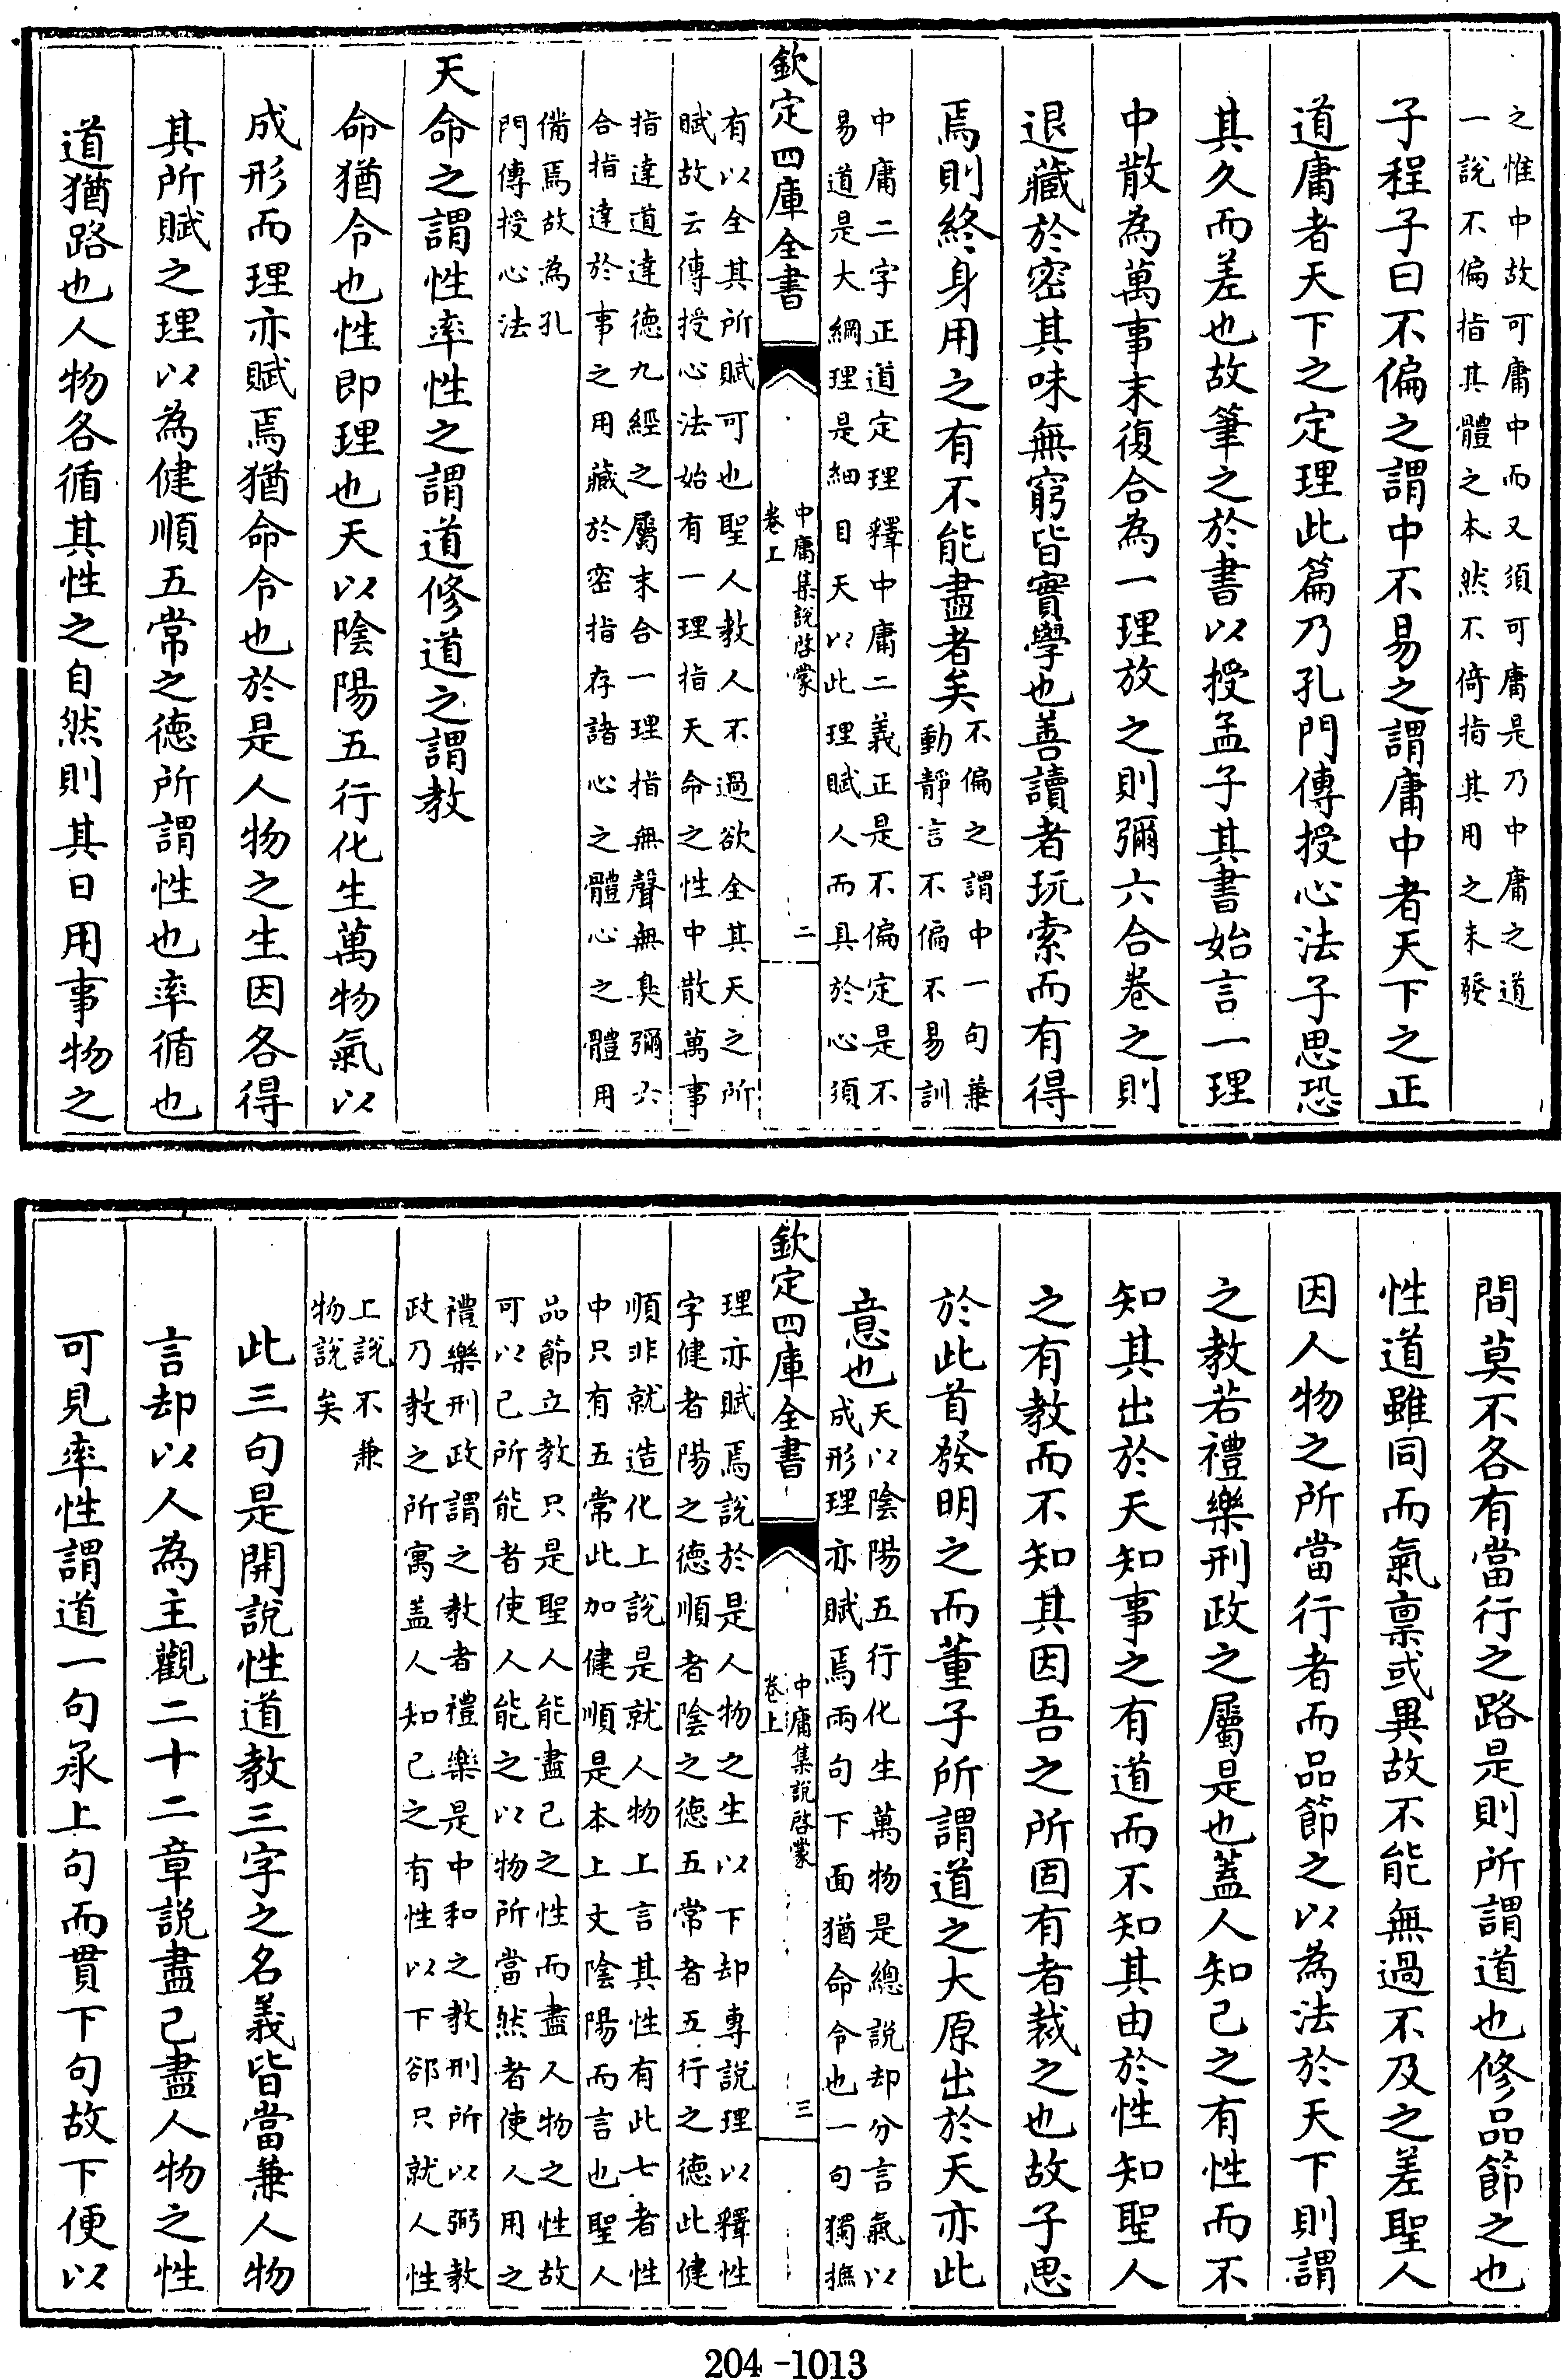 之惟中故可庸中而又須可庸是乃中庸之道
一說不偏指其體之本然不倚指其用之未發
子程子曰不偏之謂中不易之謂庸中者天下之正
道庸者天下之定理此篇乃孔門傳授心法子思恐
其久而差也故筆之於書以授孟子其書始言一理
中散為萬事末復合為一理放之則彌六合卷之則
退藏於密其味無窮皆實學也善讀者玩索而有得
焉則終身用之有不能盡者矣
不偏之謂中一句兼
動靜言不偏不易訓
中庸二字正道定理釋中庸二義正是不偏定是不
易道是大綱理是細目天以此理賦人而具於心須
欽定四庫全書
中庸集說啓蒙
卷上
二
有以全其所賦可也聖人教人不過欲全其天之所
賦故云傳授心法始有一理指天命之性中散萬事
指達道達德九經之屬末合一理指無聲無臭彌六
合指達於事之用藏於密指存諸心之體心之體用
備焉故為孔
門傳授心法
天命之謂性率性之謂道修道之謂教
命猶令也性即理也天以陰陽五行化生萬物氣以
成形而理亦賦焉猶命令也於是人物之生因各得
其所賦之理以為健順五常之德所謂性也率循也
道猶路也人物各循其性之自然則其日用事物之
間莫不各有當行之路是則所謂道也修品節之也
性道雖同而氣稟或異故不能無過不及之差聖人
因人物之所當行者而品節之以為法於天下則謂
之教若禮樂刑政之屬是也蓋人知己之有性而不
知其出於天知事之有道而不知其由於性知聖人
之有教而不知其因吾之所固有者裁之也故子思
於此首發明之而董子所謂道之大原出於天亦此
意也
天以陰陽五行化生萬物是總說却分言氣以
成形理亦賦焉兩句下面猶命令也一句獨摭
欽定四庫全書
中庸集說啓蒙
卷上
三
理亦賦焉說於是人物之生以下却專說理以釋性
字健者陽之德順者陰之德五常者五行之德此健
順非就造化上說是就人物上言其性有此七者性
中只有五常此加健順是本上文陰陽而言也聖人
品節立教只是聖人能盡己之性而盡人物之性故
可以己所能者使人能之以物所當然者使人用之
禮樂刑政謂之教者禮樂是中和之教刑所以弼教
政乃教之所寓盖人知己之有性以下郤只就人性
上說不兼
物說矣
此三句是開說性道教三字之名義皆當兼人物
言却以人為主觀二十二章說盡己盡人物之性
可見率性謂道一句承上句而貫下句故下便以
204-1013